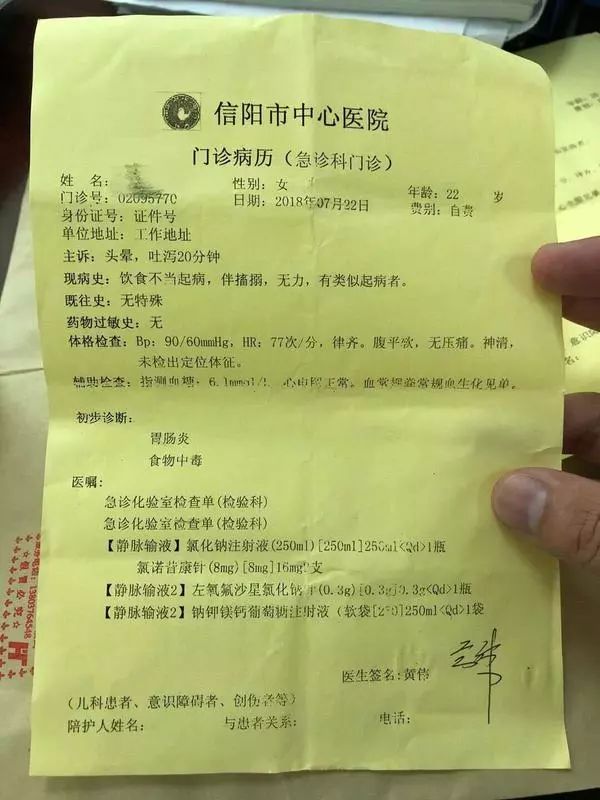 信阳市中心医院
门诊病历（急诊科门诊）
姓 名： 性别：女 年龄：22 岁
门诊号：02095770 日期：2018年07月22日 费别：自费
身份证号：证件号
单位地址：工作地址
主诉：头晕，吐泻20分钟
现病史：饮食不当起病，伴搐搦，无力，有类似起病者。
既往史：无特殊
药物过敏史：无
体格检查：Bp：90/60mmHg，HR：77次/分，律齐。腹平软，无压痛。神清，
未检出定位体征。
辅助检查：指测血糖：6.1mmol/L 心电图正常。血常规粪常规血生化见单。
初步诊断：
胃肠炎
食物中毒
医嘱：
急诊化验室检查单(检验科)
急诊化验室检查单(检验科)
【静脉输液】氯化钠注射液(250ml)[250ml]250ml<Qd>1瓶
氯诺昔康针(8mg)[8mg]16mg 支
【静脉输液2】左氧氟沙星氯化钠 (0.3g)[0.3g]0.3g<Qd>1瓶
【静脉输液2】钠钾镁钙葡萄糖注射液（软袋[250]250ml<Qd>1袋
医生签名：黄伟
（儿科患者、意识障碍者、创伤者等）
陪护人姓名： 与患者关系： 电话：